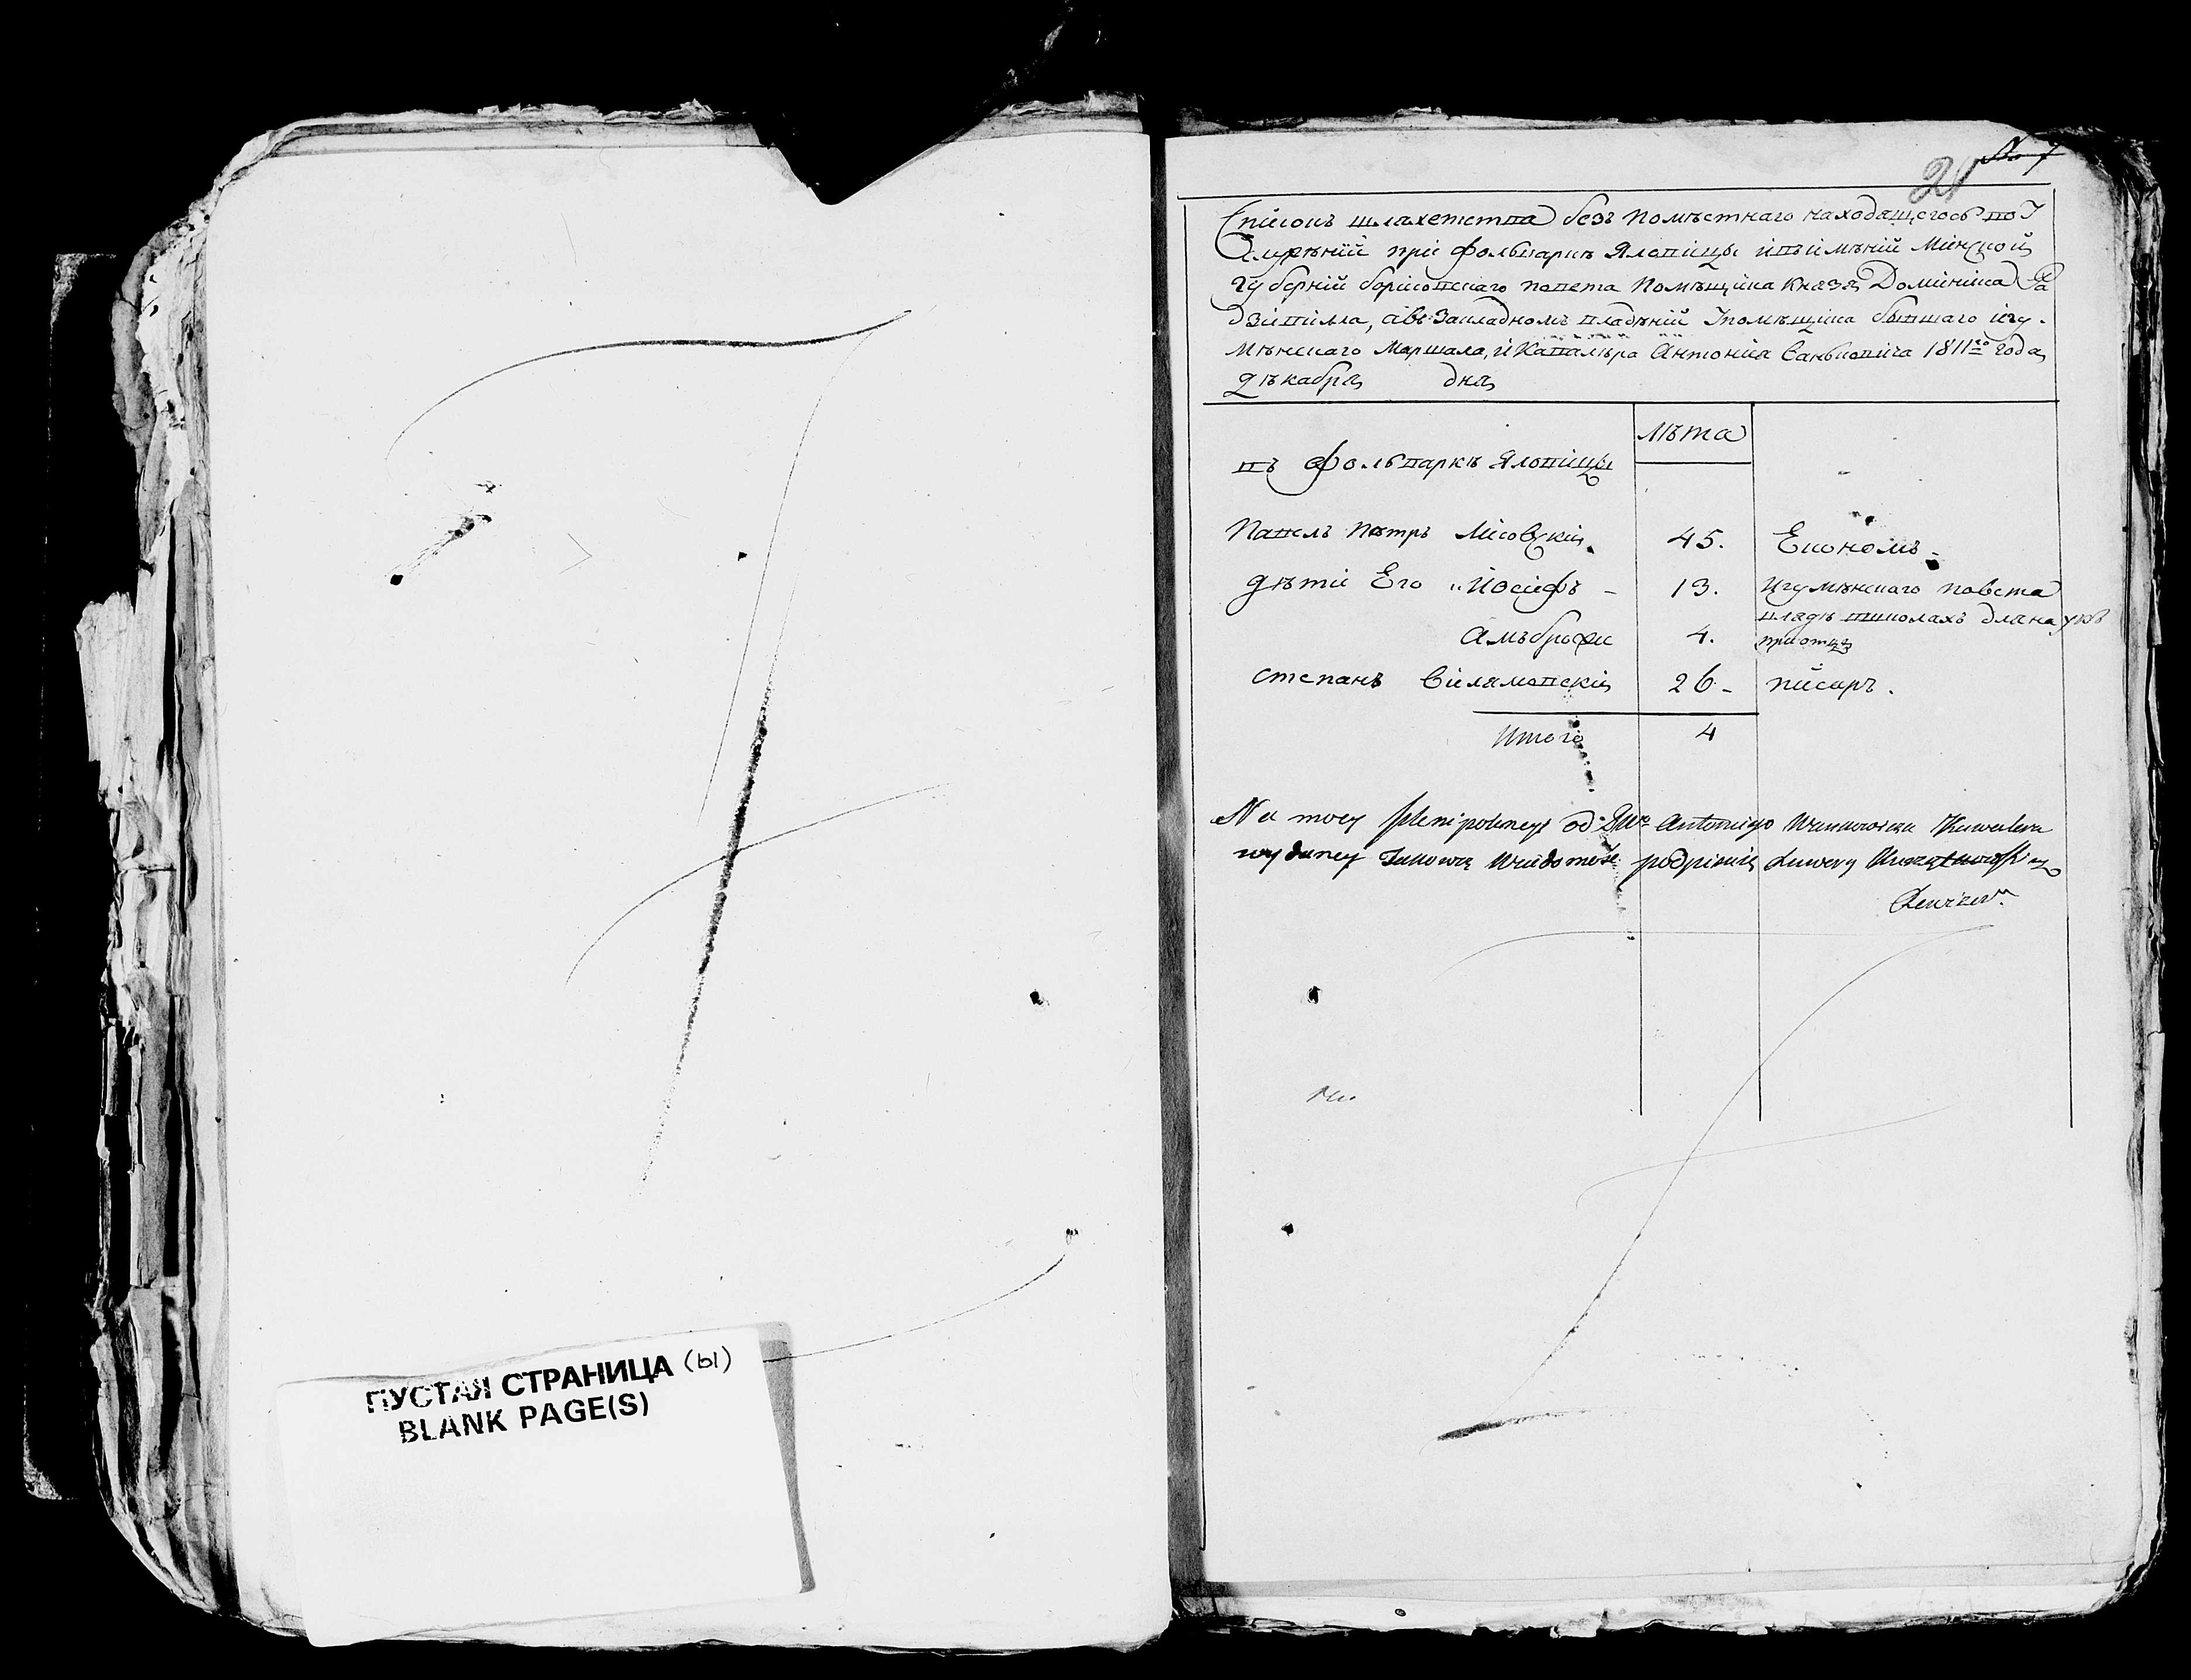 ПУСТАЯ СТРАНИЦА (ы)
BLANK PAGE(S)
21 № 7
Список шляхетства без поместнаго находящегось во
при фольварке Яловицы и въ имѣнии Минской
Губернии борисовскаго повета Помѣщика князя Доминика Ра
дзивилла, а въ Закладномъ владѣнии помѣщика бывшаго игу-
мѣнскаго Маршала, и Кавалѣра Антония Ваньковича 1811го года
дѣкабря дня
лѣта
въ фольваркѣ Яловицы
Павелъ Пѣтръ Лисовский 45. Економъ
дѣти Его Иосифъ 13. Игумѣнскаго повета
в школахъ для наукъ
Амъброжи 4. при отцѣ
степанъ Вилямовский 26 писаръ.
Итого 4
Na mocy plenipotencyi od JWo Antoniego Wankowicza Kawalera
wydaney takową Wiadomość podpisuię